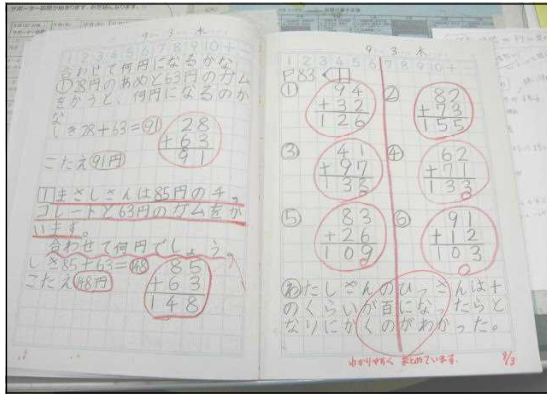 9 3 木
1 2 3 4 5 6 7 8 9 10 +
合わせて何円になるかな
①28円のあめと63円のガム
をかうと、何円になるのか
な
しき28+63=91
28
+63
91
こたえ91円
1まさしさんは85円のチョ
コレートと63円のガムをか
います。
合わせて何円でしょう。
しき85+63=148
こたえ148円
85
+63
148
9 3 木
1 2 3 4 5 6 7 8 9 10 +
P83 1
① 94
+32
126
② 82
+73
155
③ 41
+97
138
④ 62
+71
133
⑤ 83
+26
109
⑥ 91
+12
103
わたしさんのひっさんは十
のくらいが百になったらと
なりにかくのがわかった。
わかりやすく まとめています。 9/3